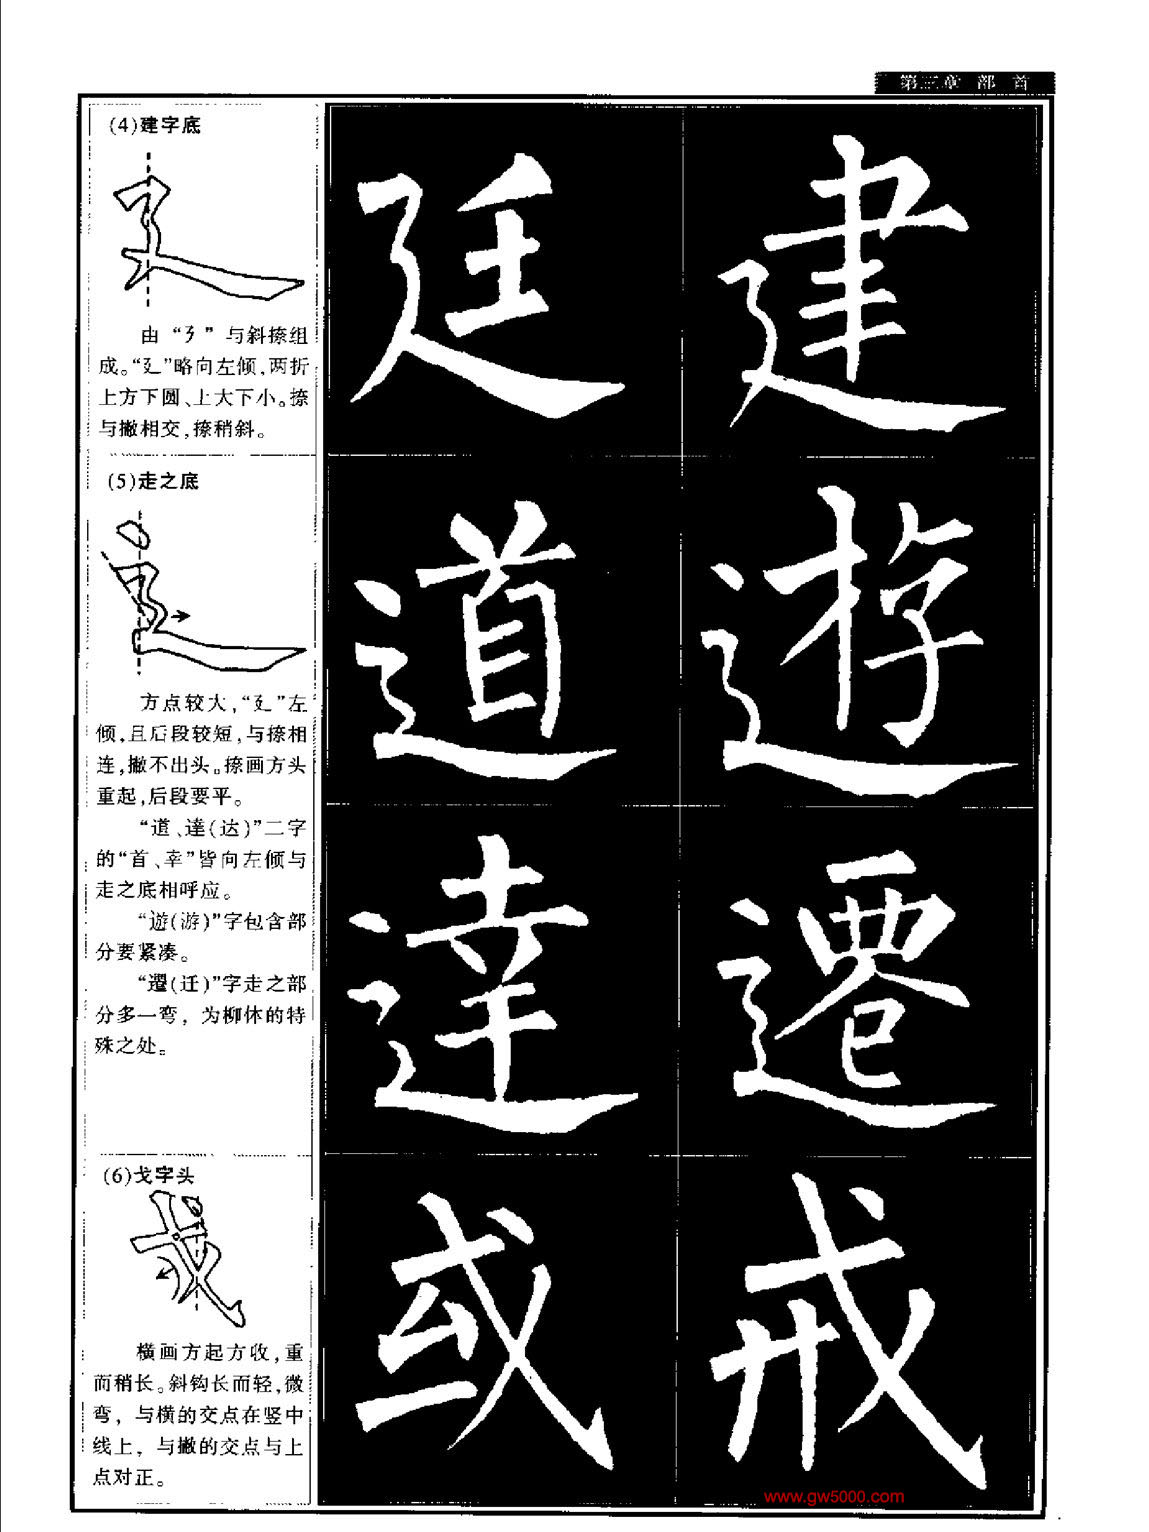 第三章 部 首
(4)建字底
由“㇋”与斜捺组
成。“廴”略向左倾,两折
上方下圆、上大下小。捺
与撇相交,捺稍斜。
廷 建
(5)走之底
方点较大,“廴”左
倾,且后段较短,与捺相
连,撇不出头。捺画方头
重起,后段要平。
“道、達(达)”二字
的“首、幸”皆向左倾与
走之底相呼应。
“遊(游)”字包含部
分要紧凑。
“遷(迁)”字走之部
分多一弯,为柳体的特
殊之处。
道 遊
達 遷
(6)戈字头
横画方起方收,重
而稍长。斜钩长而轻,微
弯,与横的交点在竖中
线上,与撇的交点与上
点对正。
或 戒
www.gw5000.com